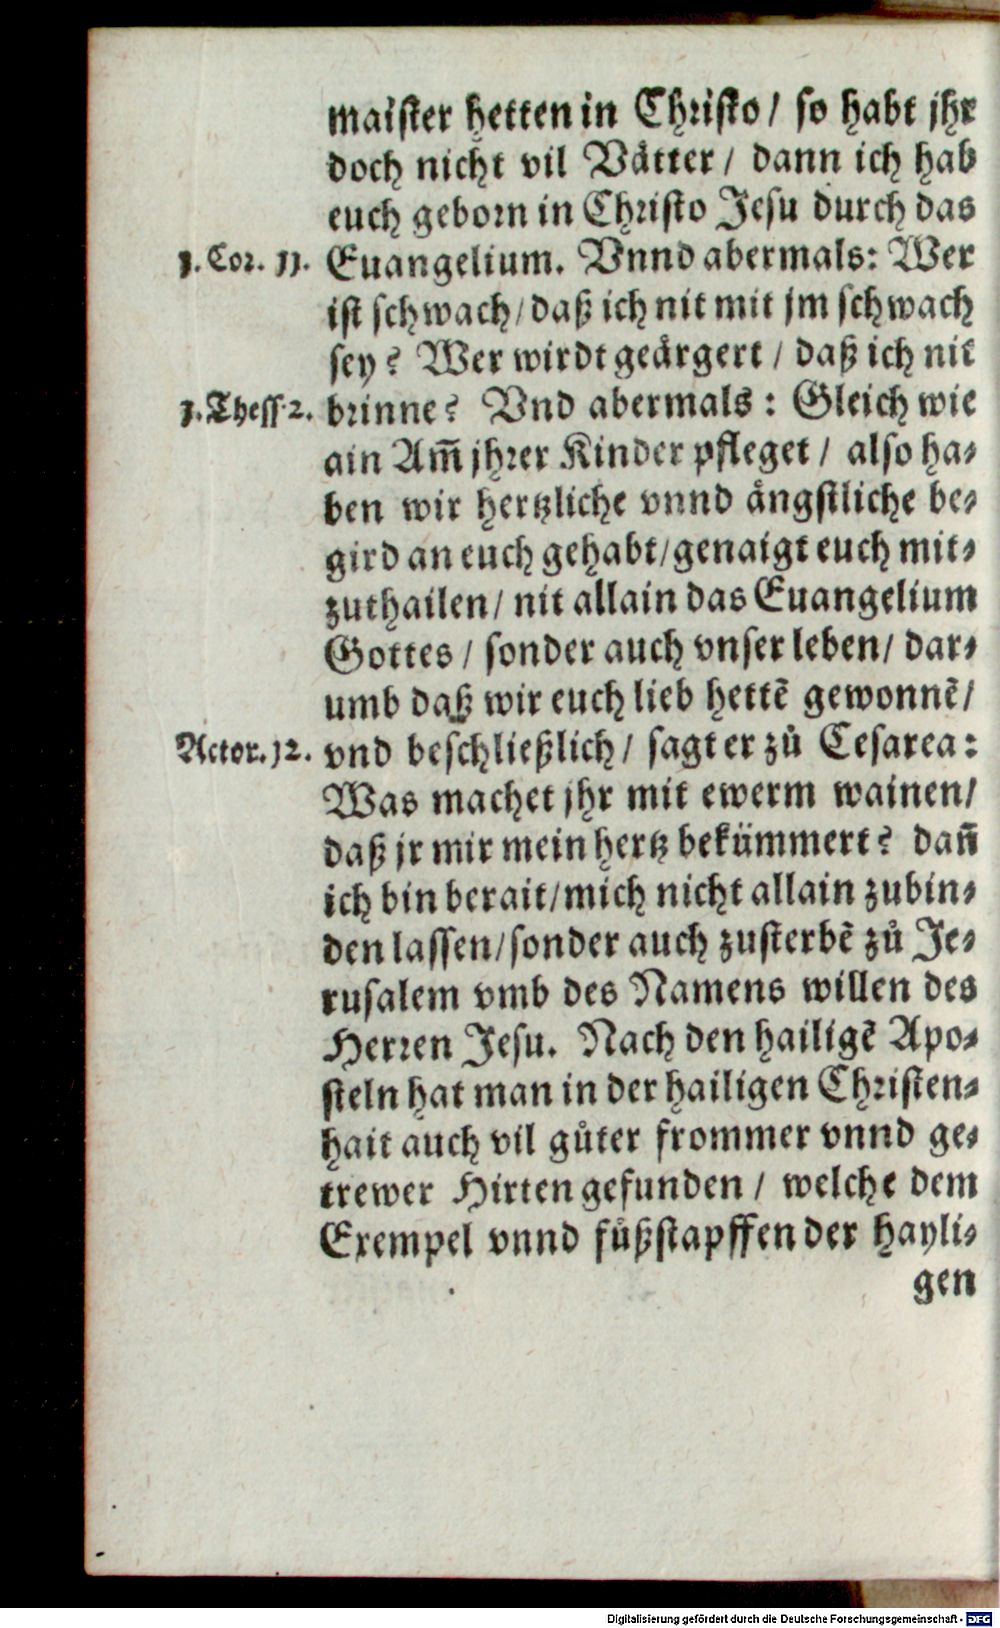 maister hetten in Christo / so habt jhr
doch nicht vil Vätter / dann ich hab
euch geborn in Christo Jesu durch das
1. Cor. 11. Euangelium. Vnnd abermals: Wer
ist schwach / daß ich nit mit jm schwach
sey? Wer wirdt geärgert / daß ich nit
1. Thess. 2. brinne? Vnd abermals: Gleich wie
ain Am̃ jhrer Kinder pfleget / also ha⸗
ben wir hertzliche vnnd ängstliche be⸗
gird an euch gehabt / genaigt euch mit⸗
zuthailen / nit allain das Euangelium
Gottes / sonder auch vnser leben / dar⸗
umb daß wir euch lieb hettẽ gewonnẽ /
Actor. 12. vnd beschließlich / sagt er zů Cesarea:
Was machet jhr mit ewerm wainen /
daß jr mir mein hertz bekümmert? dañ
ich bin berait / mich nicht allain zubin⸗
den lassen / sonder auch zusterbẽ zů Je⸗
rusalem vmb des Namens willen des
Herren Jesu. Nach den hailigẽ Apo⸗
steln hat man in der hailigen Christen⸗
hait auch vil gůter frommer vnnd ge⸗
trewer Hirten gefunden / welche dem
Exempel vnnd fůßstapffen der hayli⸗
gen
Digitalisierung gefördert durch die Deutsche Forschungsgemeinschaft - DFG